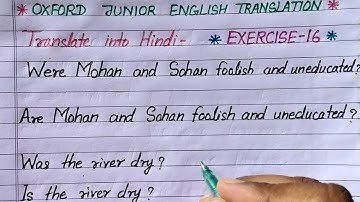 * OXFORD JUNIOR ENGLISH TRANSLATION *
Translate into Hindi- * EXERCISE-16 *
Were Mohan and Sohan foolish and uneducated?
Are Mohan and Sohan foolish and uneducated?
Was the river dry?
Is the river dry?